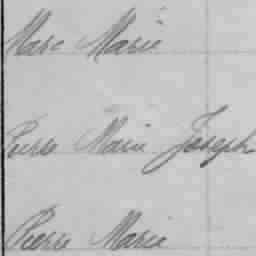 Marc Marie
Pierre Marie Joseph
Pierre Marie